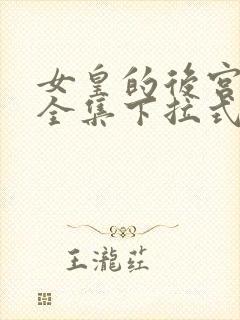 女皇的後宮
全集下拉式
王瀧荭